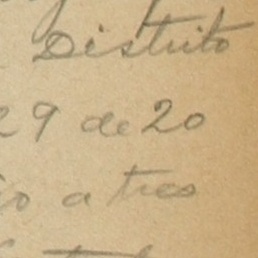 Distrito
29 de 20
a tres